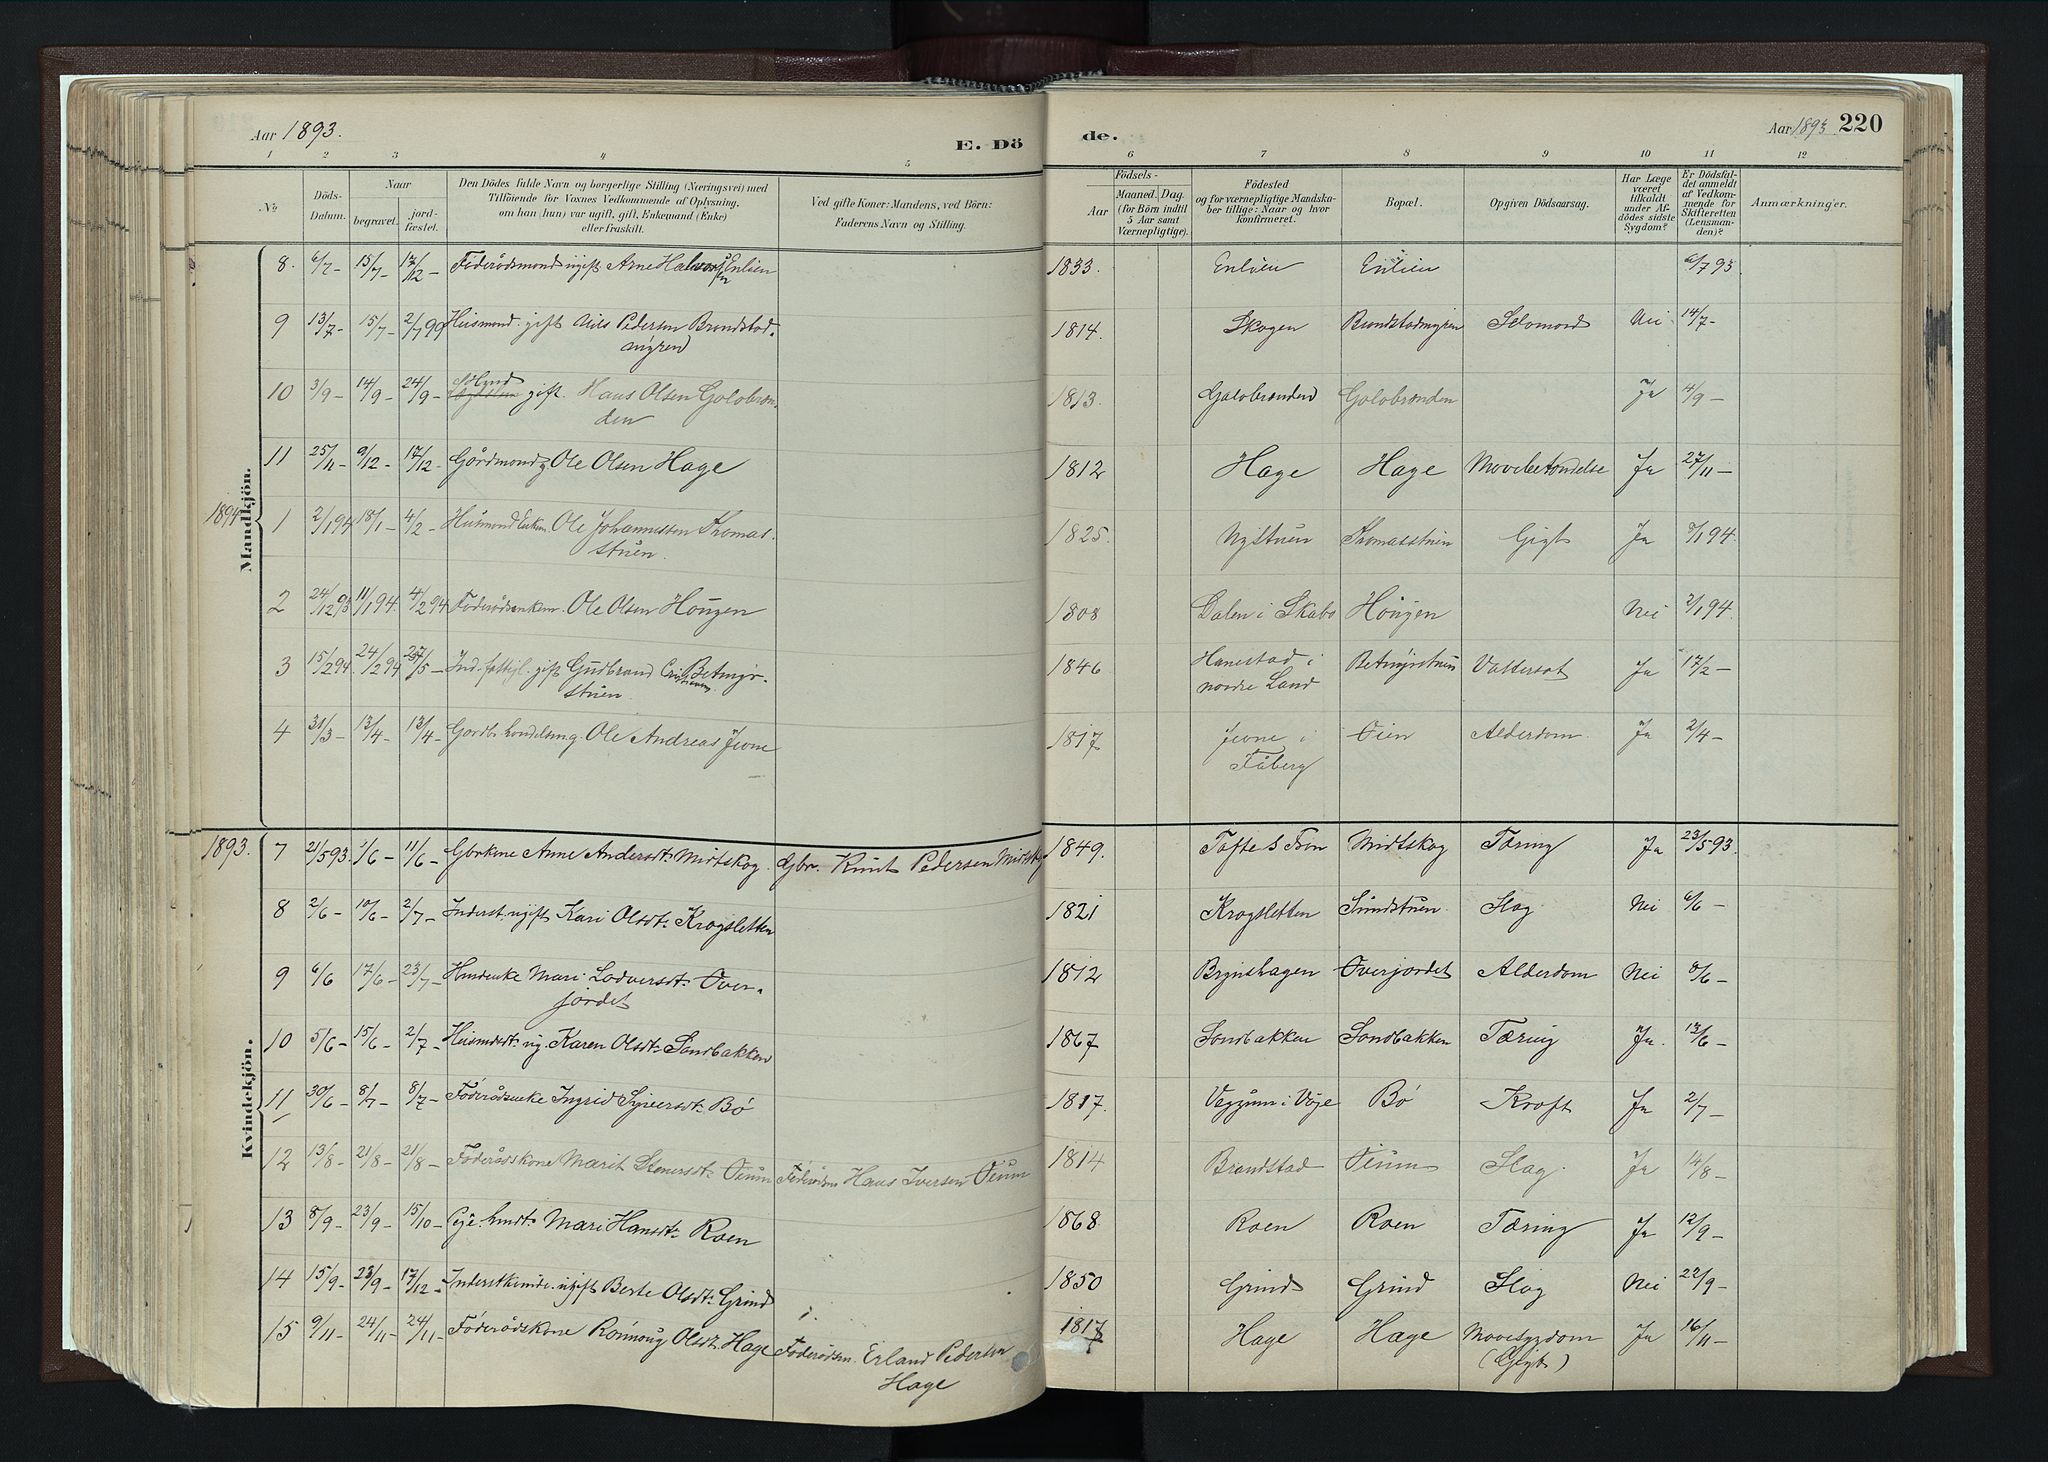 Aar 1893.
E. Dö
de.
Aar 1893 220
1 2 3 4 5 6 7 8 9 10 11 12
No
Döds-
Datum.
Naar
begravet.
jord-
fæstet.
Den Dödes fulde Navn og borgerlige Stilling (Næringsvei) med
Tilföiende for Voxnes Vedkommende af Oplysning,
om han (hun) var ugift, gift, Enkemand (Enke)
eller fraskilt.
Ved gifte Koner: Mandens, ved Börn:
Faderens Navn og Stilling.
Födsels-
Aar
Maaned. Dag.
(for Börn indtil
5 Aar samt
Værnepligtige).
Födested
og for værnepligtige Mandska-
ber tillige: Naar og hvor
konfirmeret.
Bopæl.
Opgiven Dödsaarsag.
Har Læge
været
tilkaldt
under Af-
dödes sidste
Sygdom?
Er Dödsfal-
det anmeldt
af Vedkom-
mende for
Skifteretten
(Lensman-
den)?
Anmærkninger.
Mandkjön.
8. 6/7- 15/7- 17/12- Föderådsmand ugift Arne Halvorsen Enlien 1833. Enlien Enlien 6/7 93.
9 13/7- 15/7- 2/7 99 Husmand. gift Nils Pedersen Brandstad- 1814. Skogen Brandstadmyren Selvmord Nei 14/7-
myren
10 3/9- 14/9- 24/9- gift. Hans Olsen Golobræn- 1813. Golobrænden Golobrænden Ja 4/9-
den
11 25/11- 9/12- 17/12- Gårdmand g. Ole Olsen Hage 1812 Hage Hage Mavebetændelse Ja 27/11-
1894
1 2/1 94 18/1- 4/2- Husmand Enkem. Ole Johannessen Thomas- 1825. Nystuen Thomasstuen Gigt Ja 8/1 94.
stuen.
2 24/12 93 11/1 94. 4/2 94 Föderådsenkem. Ole Olsen Hougen 1808 Dalen i Skabo Hougen Nei 2/1 94.
3 15/2 94. 24/2 94 27/5- Ind. fattigl. gift Gudbrand Betmyr- 1846 Hanestad i Betmyrstuen Vattersot Ja 17/2-
stuen. nordre Land
4 31/3- 13/4- 13/4- Gardbr. handelsm g. Ole Andreas Jevne 1817 Jevne i Öien Alderdom. Ja 2/4-
Fåberg
1893.
Kvindekjön.
7 21/5 93. 1/6- 11/6- Gbrkone Anne Andersdt: Midtskog. Gbr. Knut Pedersen Midtskog 1849. Tofte S Fron Midtskog Tæring Ja 23/5 93.
8 2/6- 10/6- 2/7- Inderst. ugift Kari Olsdt: Krogsletten 1821 Krogsletten Sundstuen. Slag. Nei 6/6-
9 6/6 17/6- 23/7- Husmenke Mari Lodversdt: Över- 1812 Brynshagen Överjordet Alderdom Nei 8/6-
jordet
10 5/6- 15/6- 2/7- Husmdt: ug. Karen Olsdt: Sandbakken 1867 Sandbakken Sandbakken Tæring Ja. 13/6-
11 30/6- 8/7- 8/7- Föderådsenke Ingrid Syversdt: Bö 1817. Veggum i Våge Bö Kræft Ja 2/7-
12 13/8- 21/8- 21/8- Föderådskone Marit Stenersdt: Öium Föderådsm Hans Iversen Öium 1814 Brandstad Öium Slag. Ja 14/8-
13 8/9- 23/9- 15/10- Mari Hansdt: Roen 1868 Roen Roen Tæring Ja 12/9-
14 15/9- 23/9- 17/12- Inderstkvinde. ugift Berte Olsdt: Grind 1850 Grind Grind Slag Nei 22/9-
15 9/11- 24/11- 24/11- Föderådskone Rönnoug Olsdt. Hage Föderådsm. Erland Pedersen 1817 Hage Hage Mavesygdom Ja 16/11-
Hage (Gigt)